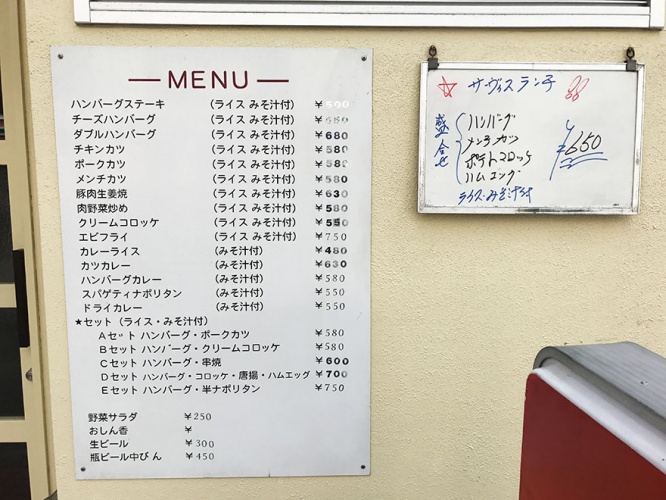 MENU
ハンバーグステーキ (ライス みそ汁付) ￥600
チーズハンバーグ (ライス みそ汁付) ￥680
ダブルハンバーグ (ライス みそ汁付) ￥680
チキンカツ (ライス みそ汁付) ￥580
ポークカツ (ライス みそ汁付) ￥580
メンチカツ (ライス みそ汁付) ￥580
豚肉生姜焼 (ライス みそ汁付) ￥630
肉野菜炒め (ライス みそ汁付) ￥580
クリームコロッケ (ライス みそ汁付) ￥550
エビフライ (ライス みそ汁付) ￥750
カレーライス (みそ汁付) ￥480
カツカレー (みそ汁付) ￥630
ハンバーグカレー (みそ汁付) ￥580
スパゲティナポリタン (みそ汁付) ￥550
ドライカレー (みそ汁付) ￥550
★セット (ライス・みそ汁付)
Aセット ハンバーグ・ポークカツ ￥580
Bセット ハンバーグ・クリームコロッケ ￥580
Cセット ハンバーグ・串焼 ￥600
Dセット ハンバーグ・コロッケ・唐揚・ハムエッグ ￥700
Eセット ハンバーグ・半ナポリタン ￥750
野菜サラダ ￥250
おしん香 ￥
生ビール ￥300
瓶ビール中びん ￥450
☆ サーヴィスランチ
盛合せ
ハンバーグ
メンチカツ
ポテトコロッケ
ハムエッグ
￥650
ライス・みそ汁付